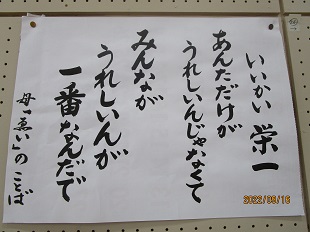 いいかい 栄一
あんただけが
うれしいんじゃなくて
みんなが
うれしいんが
一番なんだで
母「ゑい」のことば
2022/09/16